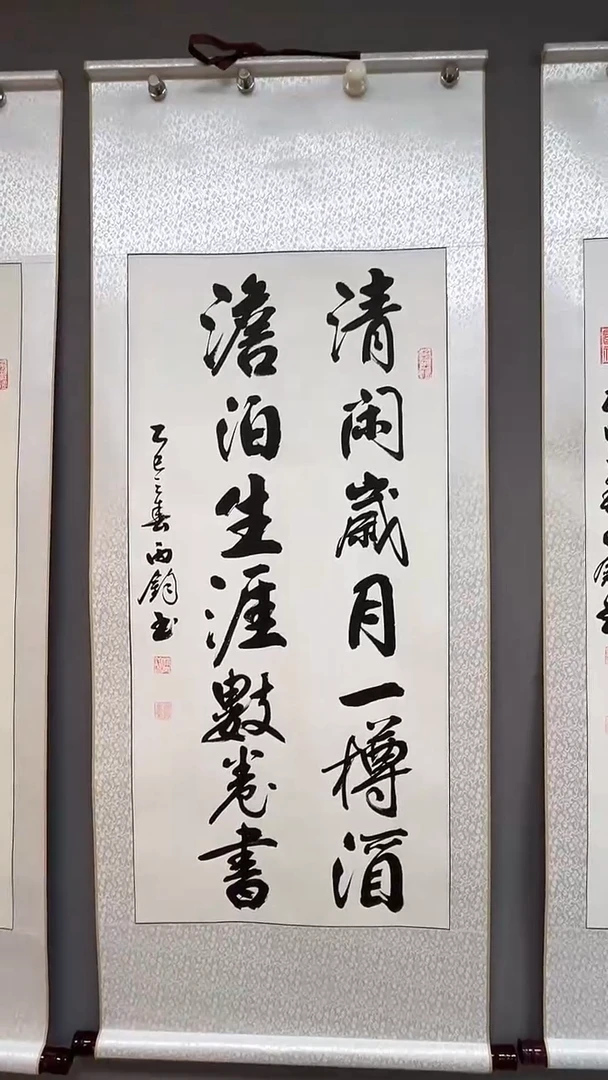 清閑歲月一樽酒
澹泊生涯數卷書
乙巳之春丙鈞書